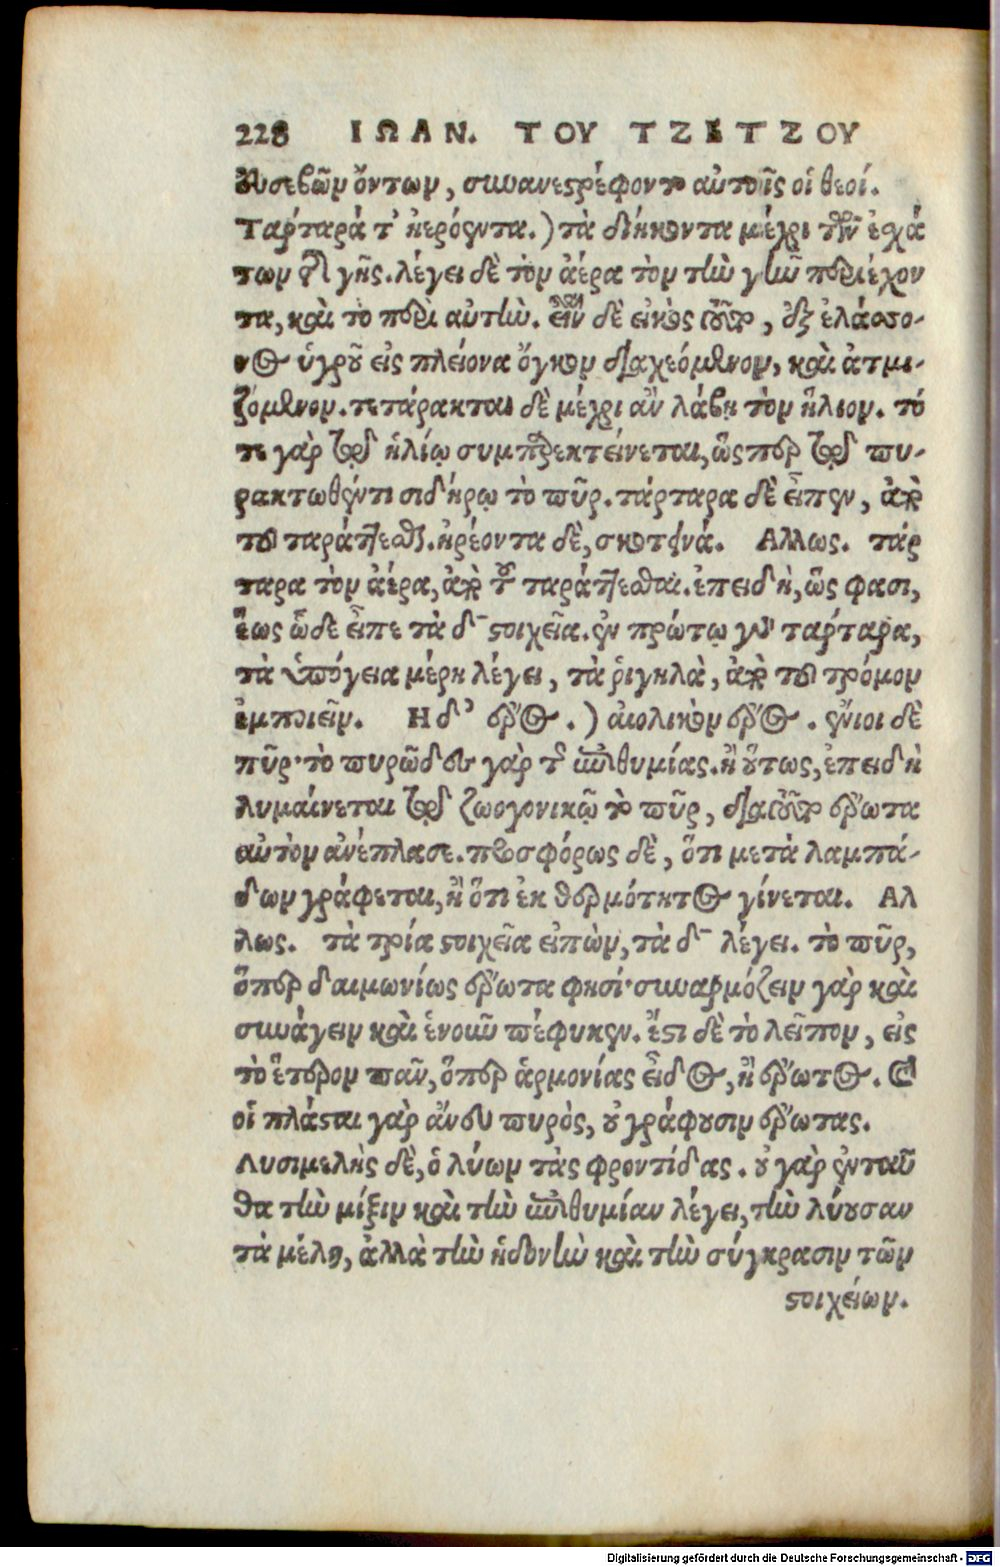 228 ΙΩΑΝ. ΤΟΥ ΤΖΕΤΖΟΥ
εὐσεβῶν ὄντων, συνανεστρέφοντο αὐτοῖς οἱ θεοί.
Τάρταρά τ' ἠερόεντα.) τὰ διήκοντα μέχρι τῶν ἐσχά
των τῆς γῆς. λέγει δὲ τὸν ἀέρα τὸν τὴν γῆν περιέχον
τα, καὶ τὸ περὶ αὐτὴν. εἶναι δὲ εἰκὸς τοῦτο, ἐξ ἐλάσσο-
νος ὑγροῦ εἰς πλείονα ὄγκον διαχεόμενον, καὶ ἀτμι-
ζόμενον. τετάρακται δὲ μέχρι ἂν λάβῃ τὸν ἥλιον. τό
τε γὰρ τῷ ἡλίῳ συμπαρεκτείνεται, ὥσπερ τῷ πυ-
ρακτωθέντι σιδήρῳ τὸ πῦρ. τάρταρα δὲ εἶπεν, ἀπὸ
τοῦ ταράττεσθαι. ἠρέοντα δὲ, σκοτεινά. Αλλως. τάρ
ταρα τὸν ἀέρα, ἀπὸ τοῦ ταράττεσθαι. ἐπειδὴ, ὥς φασι,
ἕως ὧδε εἶπε τὰ δ– στοιχεῖα. ἐν πρώτῳ γοῦν τάρταρα,
τὰ ὑπόγεια μέρη λέγει, τὰ ῥιγηλὰ, ἀπὸ τοῦ τρόμον
ἐμποιεῖν. Η δ' ἔρος.) αἰολικὸν ἔρος. ἔνιοι δὲ
πῦρ· τὸ πυρῶδες γὰρ τῆς ἐπιθυμίας. ἢ οὕτως, ἐπειδὴ
λυμαίνεται τῷ ζωογονικῷ τὸ πῦρ, διατοῦτο ἔρωτα
αὐτὸν ἀνέπλασε. προσφόρως δὲ, ὅτι μετὰ λαμπά-
δων γράφεται, ἢ ὅτι ἐκ θερμότητος γίνεται. Αλ
λως. τὰ τρία στοιχεῖα εἰπὼν, τὰ δ– λέγει. τὸ πῦρ,
ὅπερ δαιμονίως ἔρωτα φησί· συναρμόζειν γὰρ καὶ
συνάγειν καὶ ἑνοῦν πέφυκεν. ἔστι δὲ τὸ λεῖπον, εἰς
τὸ ἕτερον πᾶν, ὅπερ ἁρμονίας εἶδος, ἢ ἔρωτος. καὶ
οἱ πλάσται γὰρ ἄνευ πυρὸς, οὐ γράφουσιν ἔρωτας.
Λυσιμελὴς δὲ, ὁ λύων τὰς φροντίδας. οὐ γὰρ ἐνταῦ
θα τὴν μίξιν καὶ τὴν ἐπιθυμίαν λέγει, τὴν λύουσαν
τὰ μέλη, ἀλλὰ τὴν ἡδονὴν καὶ τὴν σύγκρασιν τῶν
στοιχείων.
Digitalisierung gefördert durch die Deutsche Forschungsgemeinschaft - DFG